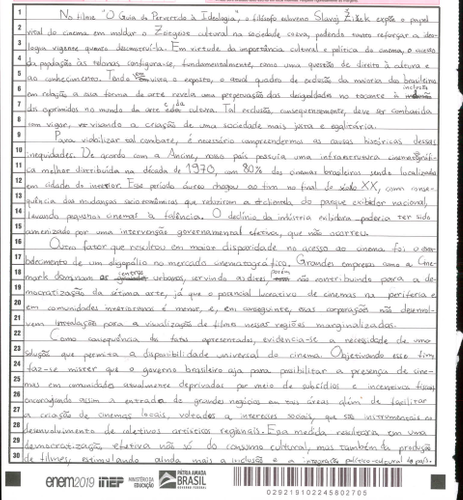 No filme "O Guia do Pervertido à Ideologia", o filósofo esloveno Slavoj Žižek expõe o papel
vital do cinema em moldar o Zeitgeist cultural na sociedade coeva, podendo tanto reforçar a ideo-
logia vigente quanto desconstruí-la. Em virtude da importância cultural e política do cinema, o acesso
da população às telonas configura-se, fundamentalmente, como uma questão de direito à cultura e
ao conhecimento. Tendo em vista o exposto, o atual quadro de exclusão da maioria dos brasileiros
em relação a essa forma de arte revela uma perpetuação das desigualdades no tocante à inclusão
dos oprimidos no mundo da arte e da cultura. Tal exclusão, consequentemente, deve ser combatida
com vigor, visando a criação de uma sociedade mais justa e egalitária.
Para viabilizar tal combate, é necessário compreendermos as causas históricas dessas
inequidades. De acordo com a Ancine, nosso país possuía uma infraestrutura cinematográfi-
ca melhor distribuída na década de 1970, com 80% dos cinemas brasileiros sendo localizados
em cidades do interior. Esse período áureo chegou ao fim no final do século XX, com conse-
quência das mudanças socioeconômicas que reduziram a clientela do parque exibidor nacional,
levando pequenos cinemas à falência. O declínio da indústria exibidora poderia ter sido
amenizado por uma intervenção governamental efetiva, que não ocorreu.
Outro fator que resultou em maior disparidade no acesso ao cinema foi o esta-
belecimento de um oligopólio no mercado cinematográfico. Grandes empresas como a Cine-
mark dominam os centros urbanos, servindo as elites, porém não contribuindo para a de-
mocratização da sétima arte, já que o potencial lucrativo de cinemas na periferia e
em comunidades interioranas é menor, e, em conseguinte, essas corporações não desenvol-
vem instalações para a visualização de filmes nessas regiões marginalizadas.
Como consequência dos fatos apresentados, evidencia-se a necessidade de uma
solução que permita a disponibilidade universal do cinema. Objetivando esse fim,
faz-se mister que o governo brasileiro aja para possibilitar a presença de cine-
mas em comunidades atualmente deprivadas por meio de subsídios e incentivos fiscais
encorajando assim a entrada de grandes negócios em tais áreas além de facilitar
a criação de cinemas locais, voltados a interesses sociais, que são instrumentais no
desenvolvimento de coletivos artísticos regionais. Essa medida resultaria em uma
democratização efetiva não só do consumo cultural, mas também da produção
de filmes, estimulando ainda mais a inclusão e a integração político-cultural do país.
enem2019 inep MINISTÉRIO DA EDUCAÇÃO PÁTRIA AMADA BRASIL GOVERNO FEDERAL
029219102245802705